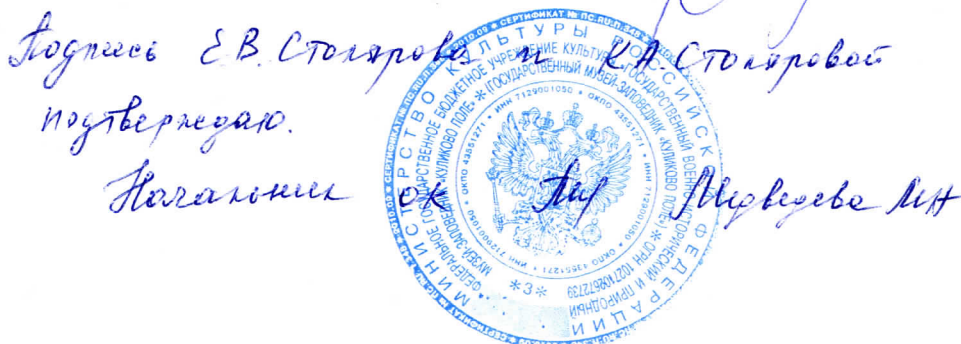 Подпись Е.В. Столярова и К.А. Столяровой
подтверждаю.
Начальник ОК Медведева МН
МИНИСТЕРСТВО КУЛЬТУРЫ РОССИЙСКОЙ ФЕДЕРАЦИИ
ФЕДЕРАЛЬНОЕ ГОСУДАРСТВЕННОЕ БЮДЖЕТНОЕ УЧРЕЖДЕНИЕ КУЛЬТУРЫ «ГОСУДАРСТВЕННЫЙ ВОЕННО-ИСТОРИЧЕСКИЙ И ПРИРОДНЫЙ
МУЗЕЙ-ЗАПОВЕДНИК «КУЛИКОВО ПОЛЕ» * (ГОСУДАРСТВЕННЫЙ МУЗЕЙ-ЗАПОВЕДНИК «КУЛИКОВО ПОЛЕ») * ОГРН 1027109672739
ИНН 7129001050 * ОКПО 43551271 * ИНН 7129001050 * ОКПО 43551271 * ИНН 7129001050 * ОКПО 43551271
*3*